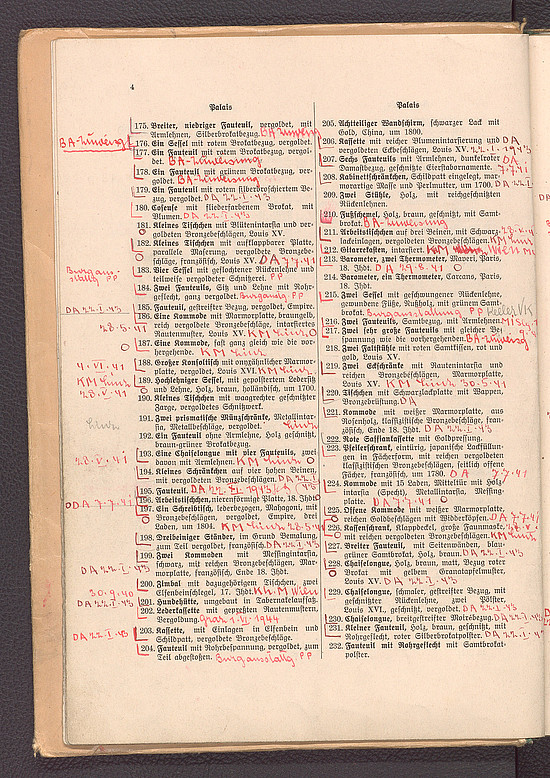 4
Palais
175. Breiter, niedriger Fauteuil, vergoldet, mit
Armlehnen, Silberbrokatbezug.
BA-
176. Ein Sessel mit rotem Brokatbezug, vergoldet.
177. Ein Fauteuil mit rotem Brokatbezug, vergol-
det.
178. Ein Fauteuil mit grünem Brokatbezug, ver-
goldet.
179. Ein Fauteuil mit rotem silberbroschierten Be-
zug, vergoldet. DA 22.I.43
180. Causeuse mit fliederfarbenem Brokat, mit
Blumen. DA 22.I.43
181. Kleines Tischchen mit Blütenintarsia und ver-
goldeten Bronzebeschlägen, Louis XV.
182. Kleines Tischchen mit aufklappbarer Platte,
parallele Maserung, vergoldete Bronzebe-
schläge, französisch, Louis XV. DA 7.7.41
Burgaus-
stallg PP
183. Vier Sessel mit geflochtener Rückenlehne und
teilweise vergoldeter Schnitzerei. PP
184. Zwei Fauteuils, Sitz und Lehne mit Rohr-
geflecht, ganz vergoldet. Burgausstlg. PP
DA 22.I.43
185. Fauteuil, gestreifter Bezug, vergoldet, Empire.
28.5.41
186. Eine Kommode mit Marmorplatte, braungelb,
reich vergoldete Bronzebeschläge, intarsiertes
Rautenmuster, Louis XV. KM Linz.
187. Eine Kommode, fast ganz gleich wie die vor-
hergehende. KM Linz
4.VI.41
188. Großer Konsoltisch mit onyxähnlicher Marmor-
platte, vergoldet, Louis XVI. KM Linz
KM Linz
28.V.41
189. Hochlehniger Sessel, mit gepolstertem Ledersitz
und Lehne, Holz, braun, holländisch, um 1700.
190. Kleines Tischchen mit waagrechter geschnitzter
Zarge, vergoldetes Schnitzwerk.
Linz
191. Zwei prismatische Münzschränke, Metallintar-
sia, Metallbeschläge, vergoldet. Linz
192. Ein Fauteuil ohne Armlehne, Holz geschnitzt,
braun-grüner Brokatbezug.
28.V.41
193. Eine Chaiselongue mit vier Fauteuils, zwei
davon mit Armlehnen. KM Linz
194. Kleines Schränkchen auf vier hohen Beinen,
mit vergoldeten Bronzebeschlägen. DA 22.I
195. Fauteuil.
DA 7.7.41
196. Arbeitstischchen, nierenförmige Platte, 18. Jhdt.
197. Ein Schreibtisch, lederbezogen, Mahagoni, mit
Bronzebeschlägen, vergoldet, Empire, drei
Laden, um 1804. KM Linz 28.5.41
198. Dreibeiniger Ständer, im Grund Bemalung,
zum Teil vergoldet, französisch. DA 22.I.43
DA 22.I.43
199. Zwei Kommoden mit Messingintarsia,
schwarz, mit reichen Bronzebeschlägen, Mar-
morplatte, französisch, Ende 18. Jhdt.
30.9.40
200. Zimbal mit dazugehörigen Tischchen, zwei
Elfenbeinschlegel, 17. Jhdt. Kh.M Wien
DA 22.I.43
201. Hundehütte, umgebaut in Tabernakelaufsatz.
202. Lederkassette mit gepreßten Rautenmustern,
Vergoldung. Graz 1.VI.1944
DA 22.I.43
203. Kassette, mit Einlagen in Elfenbein und
Schildpatt, vergoldete Bronzebeschläge.
204. Fauteuil mit Rohrbespannung, vergoldet, zum
Teil abgestoßen. Burgausstallg PP
Palais
205. Achtteiliger Wandschirm, schwarzer Lack mit
Gold, China, um 1800.
206. Kassette mit reicher Blumenintarsierung und
vergoldeten Eckbeschlägen, Louis XV. 22.I.1943
207. Sechs Fauteuils mit Armlehnen, dunkelroter
Damastbezug, geschnitzte Eierstabornamente.
208. Kabinettschrank, Schildpatt eingelegt, mar-
morartige Masse und Perlmutter, um 1700. DA 22.I.
209. Zwei Stühle, Holz, mit reichgeschnitzten
Rückenlehnen.
210. Fußschemel, Holz, braun, geschnitzt, mit Samt-
brokat.
211. Arbeitstischchen auf drei Beinen, mit Schwarz-
lackeinlagen, vergoldeten Bronzebeschlägen. KM Linz
212. Glaretkasten, intarsiert. KM
213. Barometer, zwei Thermometer, Maveri, Paris,
18. Jhdt. DA 29.8.41
214. Barometer, ein Thermometer, Carcans, Paris,
18. Jhdt.
215. Zwei Sessel mit geschwungener Rückenlehne,
gewundene Füße, Nußholz, mit grünem Samt-
brokat. Burgausstallung PP
216. Zwei Fauteuils, Samtbezug, mit Armlehnen.
217. Zwei sehr große Fauteuils mit gleicher Be-
spannung wie die vorhergehenden.
218. Zwei Faltstühle mit roten Samtkissen, rot und
gold, Louis XV.
219. Zwei Eckschränke mit Rautenintarsia und
reichen Bronzebeschlägen, Marmorplatte,
Louis XV. KM Linz 30.5.41
220. Tischchen mit Schwarzlackplatte mit Wappen,
Bronzebrüstung. DA
221. Kommode mit weißer Marmorplatte, aus
Rosenholz, klassizistische Bronzebeschläge, fran-
zösisch, Ende 18. Jhdt. DA 22.I.43
222. Rote Saffiankassette mit Goldpressung.
223. Pfeilerschrank, eintürig, japanische Lackfüllun-
gen in Fächerform, mit reichen vergoldeten
klassizistischen Bronzebeschlägen, seitlich offene
Fächer, französisch, um 1780. DA 7.7.41
224. Kommode mit 15 Laden, Mitteltür mit Holz-
intarsia (Specht), Metallintarsia, Messing-
platte. DA 7.7.41
225. Offene Kommode mit weißer Marmorplatte,
reichen Goldbeschlägen mit Widderköpfen. DA 7.7.41
226. Kassenschrank, Klappdeckel, große Faunmaske,
mit reichen vergoldeten Bronzebeschlägen. KM Linz
227. Breiter Fauteuil, mit Seitenwänden, blau-
grüner Samtbrokat, Holz, braun. DA 22.I.43
228. Chaiselongue, Holz, braun, matt, Bezug roter
Brokat mit gelbem Granatapfelmuster,
Louis XV. DA 22.I.43
229. Chaiselongue, schmaler, gestreifter Bezug, mit
geschnitzter Rückenlehne, zwei Pölster,
Louis XVI., geschnitzt, vergoldet. DA 22.I.43
230. Chaiselongue, breitgestreifter Moirébezug. DA 22.I.43
231. Kleiner Fauteuil, Holz, braun, geschnitzt, mit
Rohrgeflecht, roter Silberbrokatpolster. DA 22.I.43
232. Fauteuil mit Rohrgeflecht mit Samtbrokat-
polster.